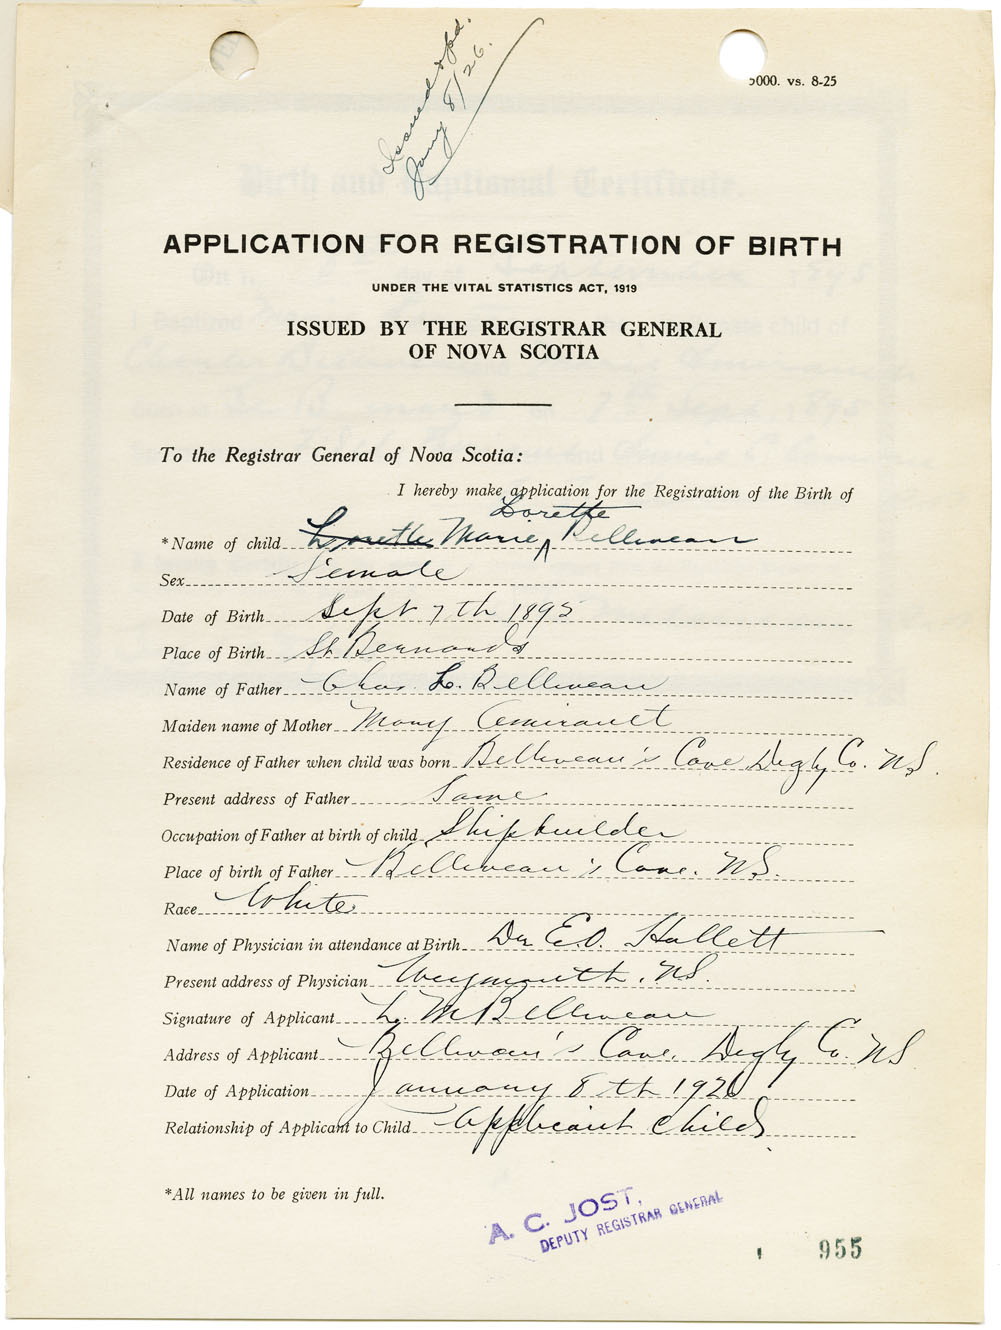 Issued & pd.
Jany 8/26.
5000. vs. 8-25
APPLICATION FOR REGISTRATION OF BIRTH
UNDER THE VITAL STATISTICS ACT, 1919
ISSUED BY THE REGISTRAR GENERAL
OF NOVA SCOTIA
To the Registrar General of Nova Scotia:
I hereby make application for the Registration of the Birth of
Lorette
*Name of child Lorette Marie ^ Belliveau
Sex Female
Date of Birth Sept 7th 1895
Place of Birth St Bernards
Name of Father Chas. L. Belliveau
Maiden name of Mother Mary Amirault
Residence of Father when child was born Belliveau's Cove Digby Co. N.S.
Present address of Father Same
Occupation of Father at birth of child Shipbuilder
Place of birth of Father Belliveau's Cove. N.S.
Race White
Name of Physician in attendance at Birth Dr E.O. Hallett
Present address of Physician Weymouth, N.S.
Signature of Applicant L. M Belliveau
Address of Applicant Belliveau's Cove, Digby Co. N.S
Date of Application January 8th 1926
Relationship of Applicant to Child Applicant Child
*All names to be given in full.
A. C. JOST,
DEPUTY REGISTRAR GENERAL
955